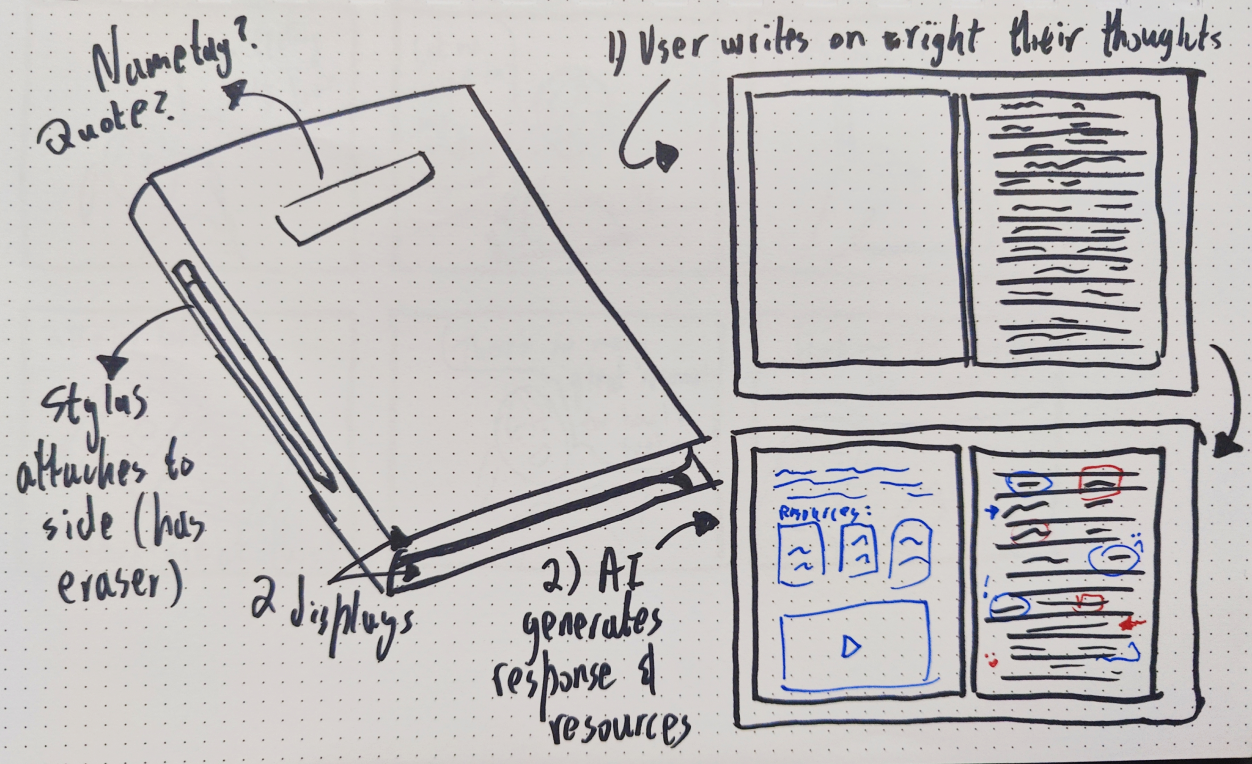 Nametag?
Quote?
Stylus
attaches to
side (has
eraser)
2 displays
1) User writes on right their thoughts
2) AI
generates
response &
resources
Resources: